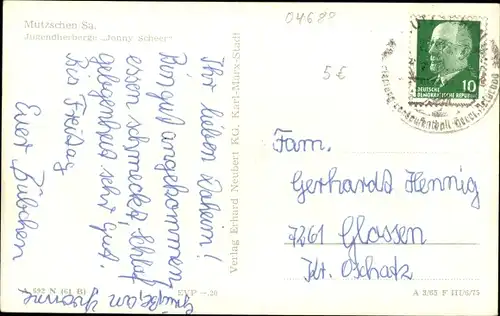 Mutzschen Sa.
Jugendherberge „Jenny Scheer"
04688
5 €
DEUTSCHE
DEMOKRATISCHE REPUBLIK
10
Ihr lieben Daheim!
Sind gut angekommen,
essen schmeckt Schlaf
gelegenheit sehr gut.
Bis Freitag
Euer Bübchen
Grüße an Yvonne
Verlag Erhard Neubert KG, Karl-Marx-Stadt
Fam.
Gerhardt Hennig
7261 Glossen
Kr. Oschatz
A 692 N (61 B) EVP -.20
A 3/65 F III/6/75